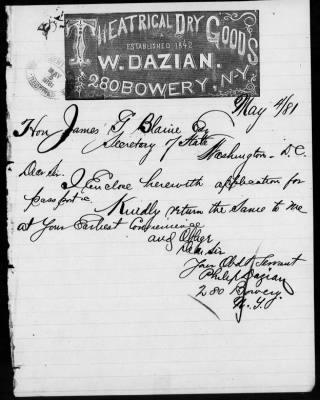 THEATRICAL DRY GOODS
ESTABLISHED 1842
W. DAZIAN.
280 BOWERY, N.Y.
May 4/81
Hon James G Blaine Esq
Secretary of State
Washington D.C.
Dear Sir.
I Enclose herewith application for
passport. Kindly return the same to me
at Your Earliest Convenience
and Oblige
Your Obdt Servant
Philip Dazian
280 Bowery
N.Y.